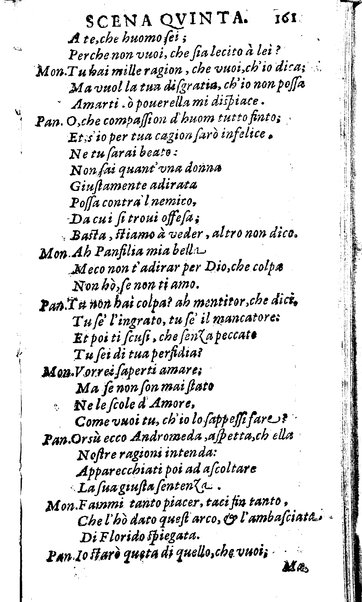 SCENA QVINTA. 161
A te, che huomo sei;
Perche non vuoi, che sia lecito à lei?
Mon. Tu hai mille ragion, che vuoi, ch'io dica;
Ma vuol la tua disgratia, ch'io non possa
Amarti. ò pouerella mi dispiace.
Pan. O, che compassion d'huom tutto finto;
Et s'io per tua cagion sarò infelice.
Ne tu sarai beato:
Non sai quant'vna donna
Giustamente adirata
Possa contra'l nemico,
Da cui si troui offesa;
Basta, stiamo à veder, altro non dico.
Mon. Ah Panfilia mia bella
Meco non t'adirar per Dio, che colpa
Non hò, se non ti amo.
Pan. Tu non hai colpa? ah mentitor, che dici,
Tu se' l'ingrato, tu se' il mancatore:
Et poi ti scusi, che senza peccato
Tu sei di tua perfidia?
Mon. Vorrei saperti amare;
Ma se non son mai stato
Ne le scole d'Amore,
Come vuoi tu, ch'io lo sappessi fare?
Pan. Orsù ecco Andromeda, aspetta, ch ella
Nostre ragioni intenda:
Apparecchiati poi ad ascoltare
La sua giusta sentenza.
Mon. Fammi tanto piacer, taci fin tanto,
Che l'hò dato quest'arco, & l'ambasciata
Di Florido spiegata.
Pan. Io starò queta di quello, che vuoi;
Ma